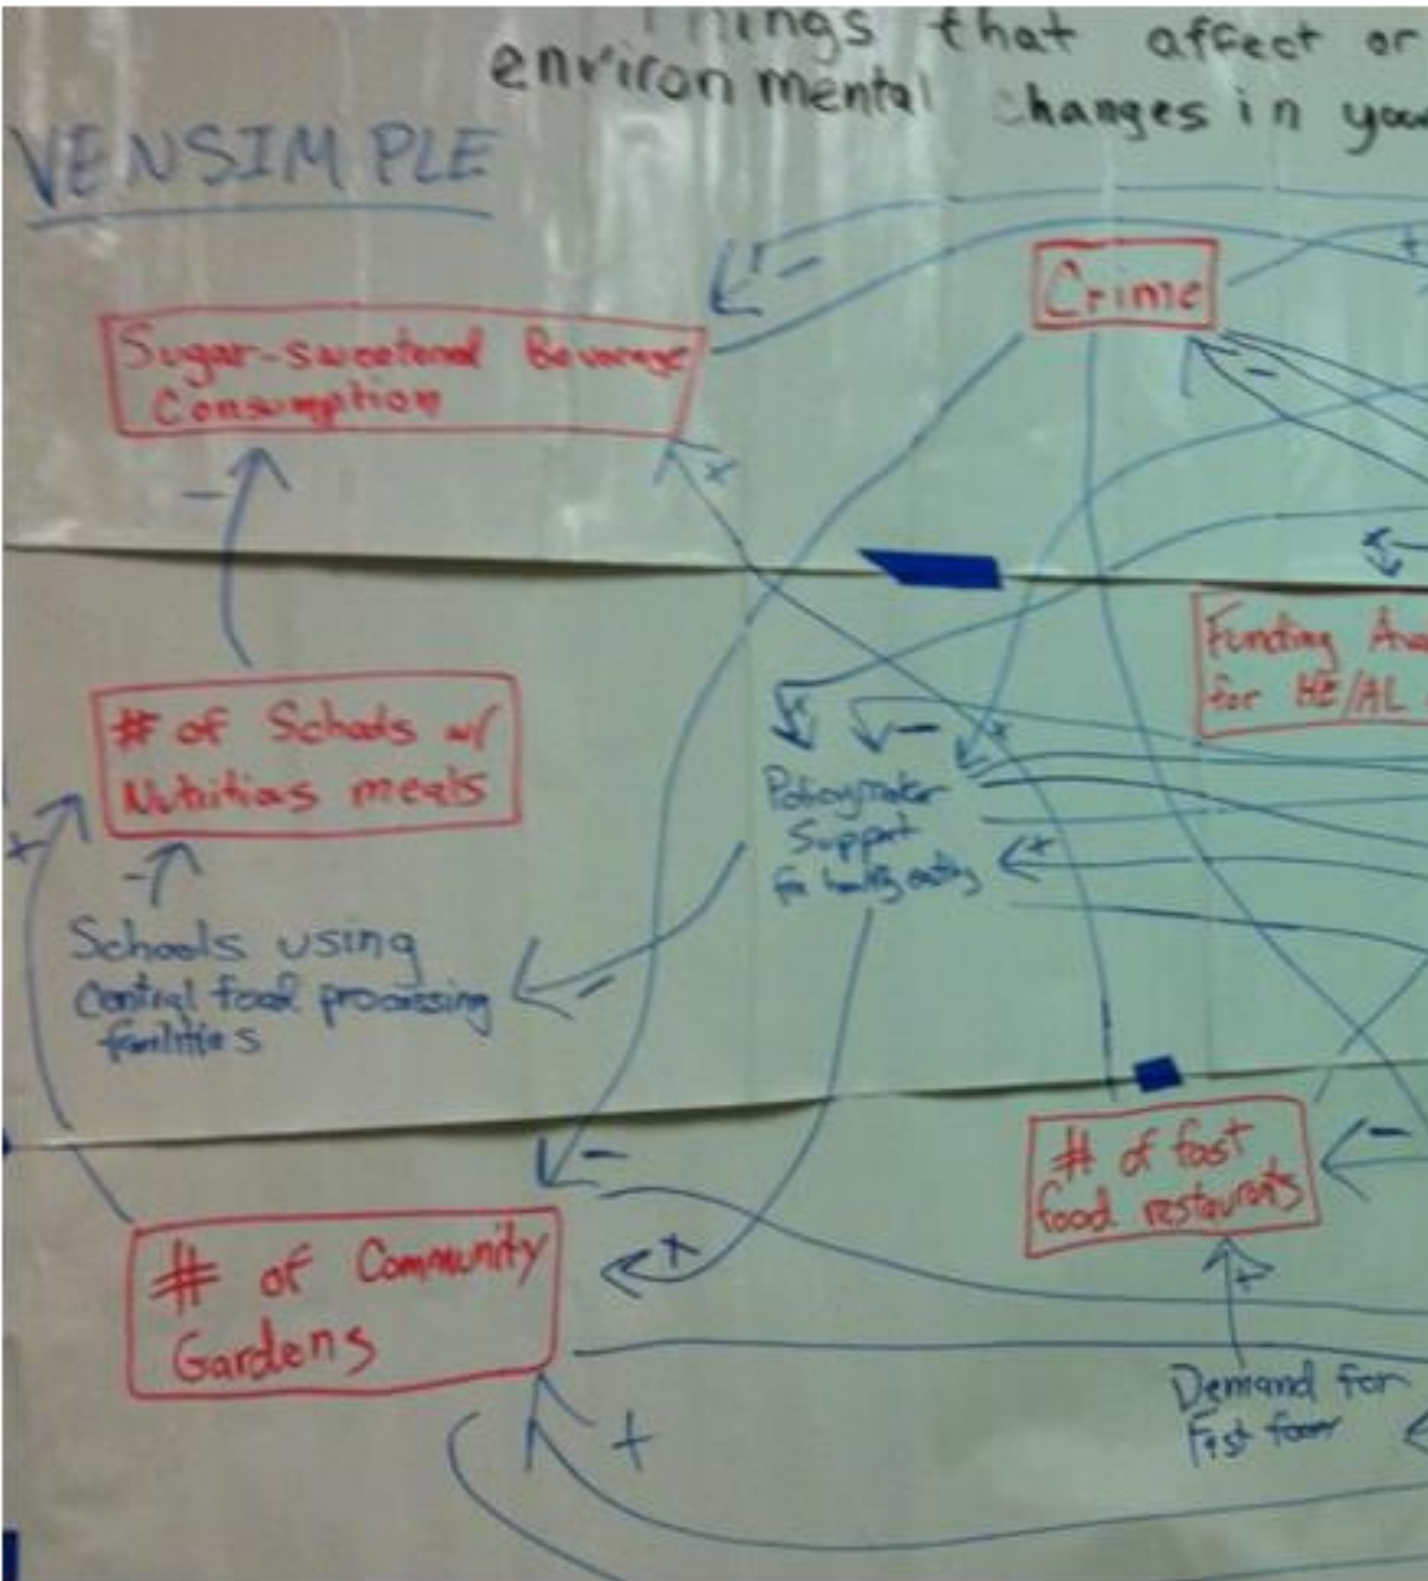 Things that affect or
environmental changes in you
VENSIMPLE
Crime
Sugar-sweetened Beverage
Consumption
Funding
for HE/AL
# of Schools w/
Nutritias meals
Policymaker
Support
for healthy eating
Schools using
Central food processing
facilities
# of fast
food restaurants
# of Community
Gardens
Demand for
Fast food